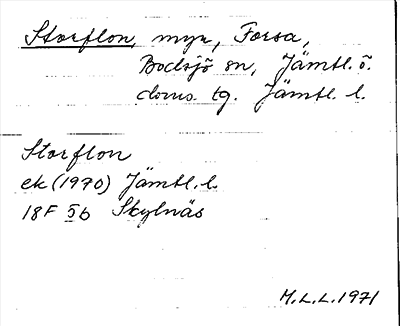 Storflon, myr, Forsa,
Bodsjö sn, Jämtl. ö.
doms. tg. Jämtl. l.
Storflon
ek (1970) Jämtl. l.
18F 5b Skylnäs
M.L.L. 1971